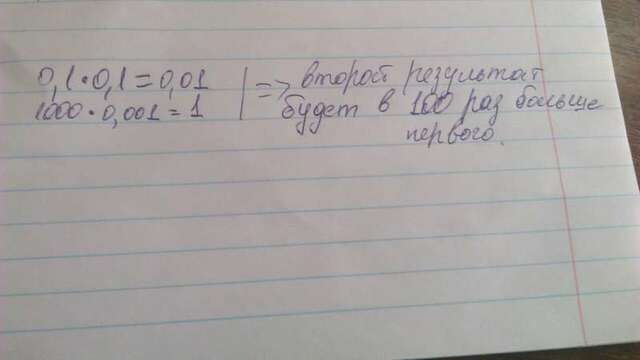 0,1·0,1=0,01
1000·0,001=1
=> второй результат
будет в 100 раз больше
первого.